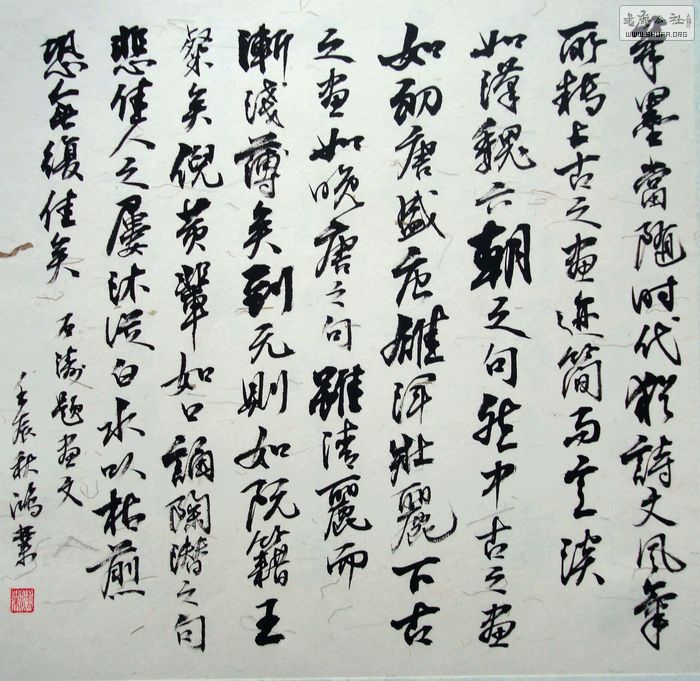 笔墨當随时代猶詩文风氣
所轉上古之画迹简而意淡
如漢魏六朝之句然中古之画
如初唐盛唐雄渾壯麗下古
之画如晚唐之句雖清麗而
漸淺薄矣到元則如阮籍王
粲矣倪黄輩如口誦陶潜之句
悲佳人之屢沐從白水以枯煎
恐無復佳矣 石涛题画文
壬辰秋 鴻業
WWW.SHUFA.ORG